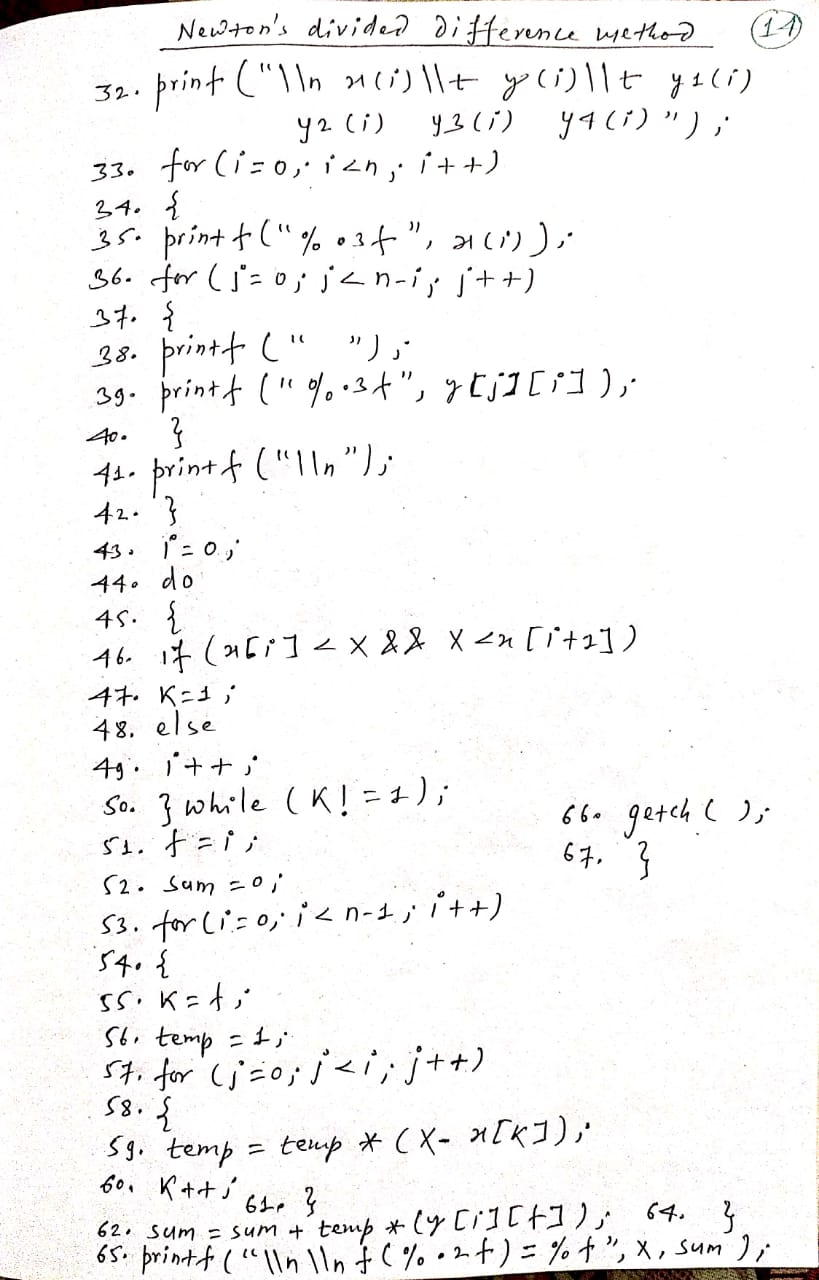 Newton's divided difference method
14
32. print ("\\n x(i)\\t y(i)\\t y1(i)
y2(i) y3(i) y4(i)");
33. for(i=0; i<n; i++)
34. {
35. printf("%.3f", x(i));
36. for(j=0; j<n-i; j++)
37. {
38. printf(" ");
39. printf("%.3f", y[j][i]);
40. }
41. printf("\\n");
42. }
43. i=0;
44. do
45. {
46. if(x[i] < X && X <x[i+1])
47. K=1;
48. else
49. i++;
50. } while (K!=1);
51. f=i;
52. sum=0;
53. for(i=0; i<n-1; i++)
54. {
55. K=f;
56. temp=1;
57. for (j=0; j<i; j++)
58. {
59. temp = temp * (X- x[K]);
60. K++; 61. }
62. sum = sum + temp*(y[i][f]); 64. }
65. printf("\\n\\n f(%.2f)=%f", X, sum);
66. getch( );
67. }